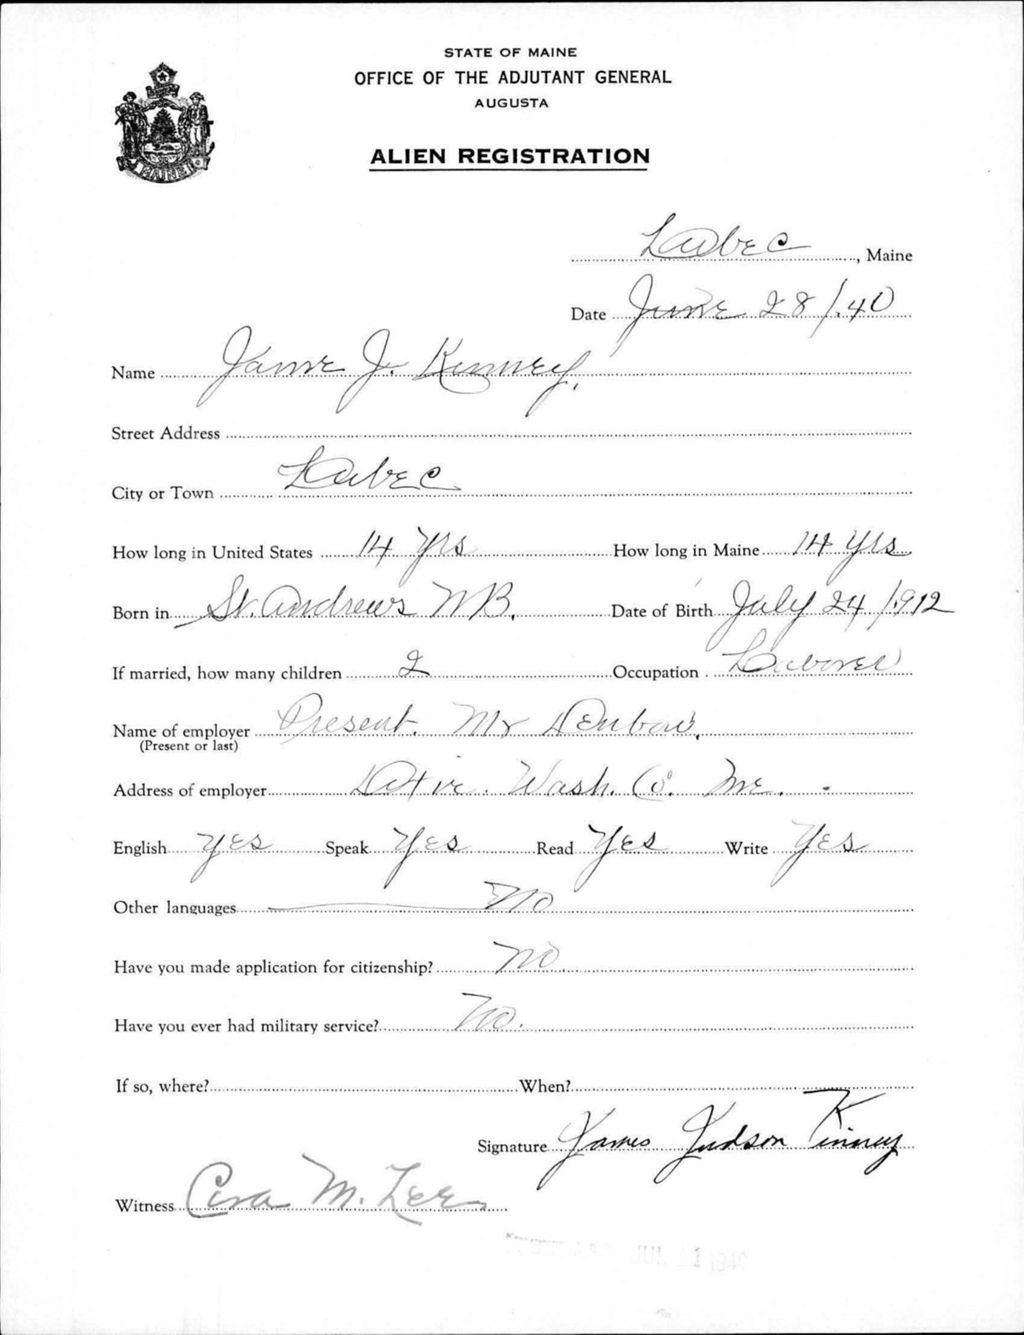 STATE OF MAINE
OFFICE OF THE ADJUTANT GENERAL
AUGUSTA
ALIEN REGISTRATION
MAINE
Lubec, Maine
Date June 28/.40
Name Jame J. Kinney.
Street Address
City or Town Lubec
How long in United States 14 Yrs How long in Maine 14 Yrs
Born in St. Andrews N B. Date of Birth July 24/1912
If married, how many children 2 Occupation Laborer
Name of employer Present. Mr Denbow.
(Present or last)
Address of employer Wash. Co. Me.
English Yes Speak Yes Read Yes Write Yes
Other languages No
Have you made application for citizenship? No
Have you ever had military service? No.
If so, where? When?
Signature James Judson Kinney
Witness M. Lee
JUL 1 1940